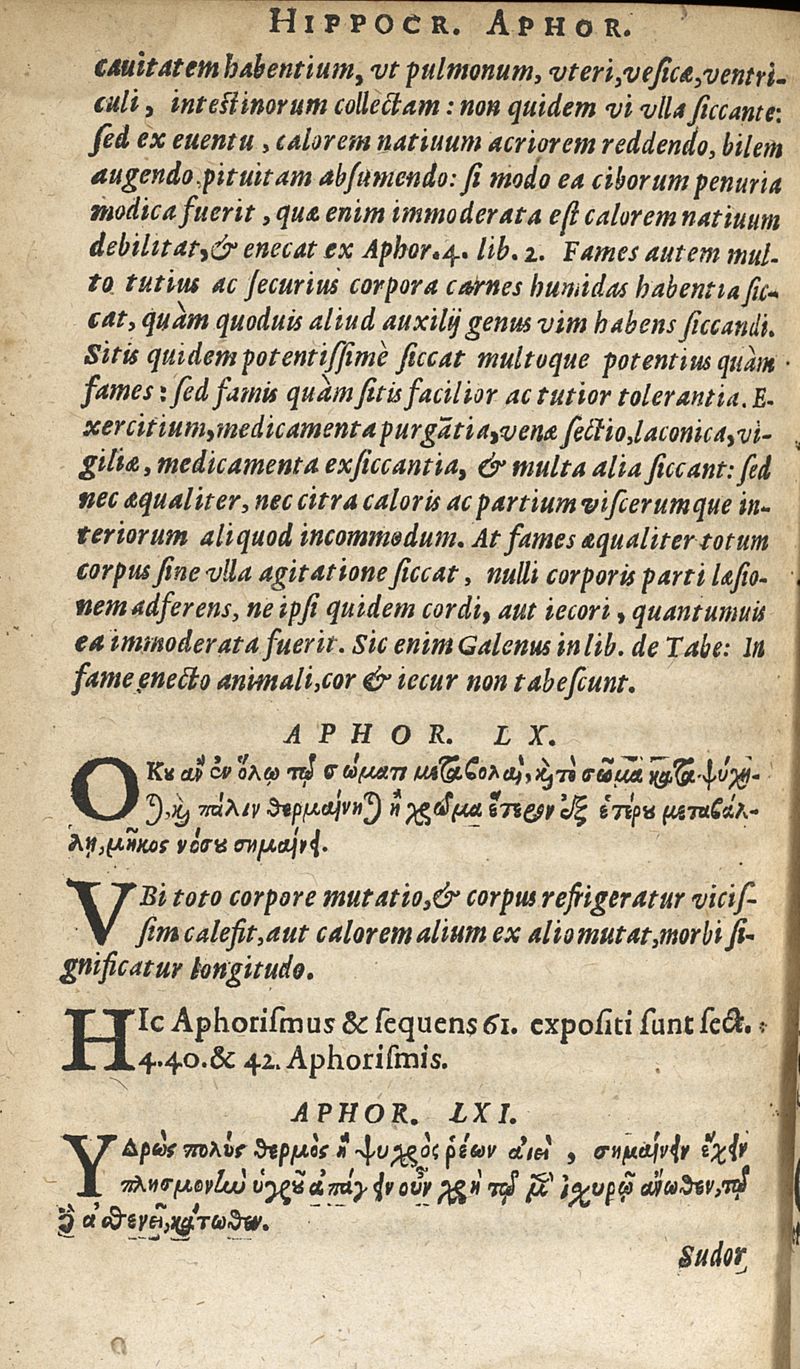 HIPPOCR. APHOR.
cauitatem habentium, vt pulmonum, vteri, vesicæ, ventri-
culi, intestinorum collectam: non quidem vi vlla siccante:
sed ex euentu, calorem natiuum acriorem reddendo, bilem
augendo, pituitam absumendo: si modo ea ciborum penuria
modica fuerit, quæ enim immoderata est calorem natiuum
debilitat, & enecat ex Aphor. 4. lib. 2. Fames autem mul-
to tutius ac securius corpora carnes humidas habentia sic-
cat, quàm quoduis aliud auxilij genus vim habens siccandi.
Sitis quidem potentissimè siccat multoque potentius quàm
fames: sed famis quàm sitis facilior ac tutior tolerantia. E-
xercitium, medicamenta purgãtia, venæ sectio, laconica, vi-
giliæ, medicamenta exsiccantia, & multa alia siccant: sed
nec æqualiter, nec citra caloris ac partium viscerumque in-
teriorum aliquod incommodum. At fames æqualiter totum
corpus sine vlla agitatione siccat, nulli corporis parti læsio-
nem adferens, ne ipsi quidem cordi, aut iecori, quantumuis
ea immoderata fuerit. Sic enim Galenus in lib. de Tabe: In
fame enecto animali, cor & iecur non tabescunt.
APHOR. LX.
ΟΚου ἂν ἐν ὅλῳ τῷ σώματι μεταβολαὶ, καὶ τὸ σῶμα καταψύχη-
ται, καὶ πάλιν θερμαίνηται ἢ χρῶμα ἕτερον ἐξ ἑτέρου μεταβάλ-
λῃ, μῆκος νόσου σημαίνει.
VBi toto corpore mutatio, & corpus refrigeratur vicis-
sim calefit, aut calorem alium ex alio mutat, morbi si-
gnificatur longitudo.
HIc Aphorismus & sequens 61. expositi sunt sect.
4. 40. & 42. Aphorismis.
APHOR. LXI.
ΥΔρὼς πολὺς θερμὸς ἢ ψυχρὸς ῥέων αἰεὶ, σημαίνει ἔχειν
πλησμονὴν ὑγροῦ ἀπάγειν οὖν χρὴ τῷ μὲν ἰσχυρῷ ἄνωθεν, τῷ
δὲ ἀσθενεῖ, κάτωθεν.
Sudor